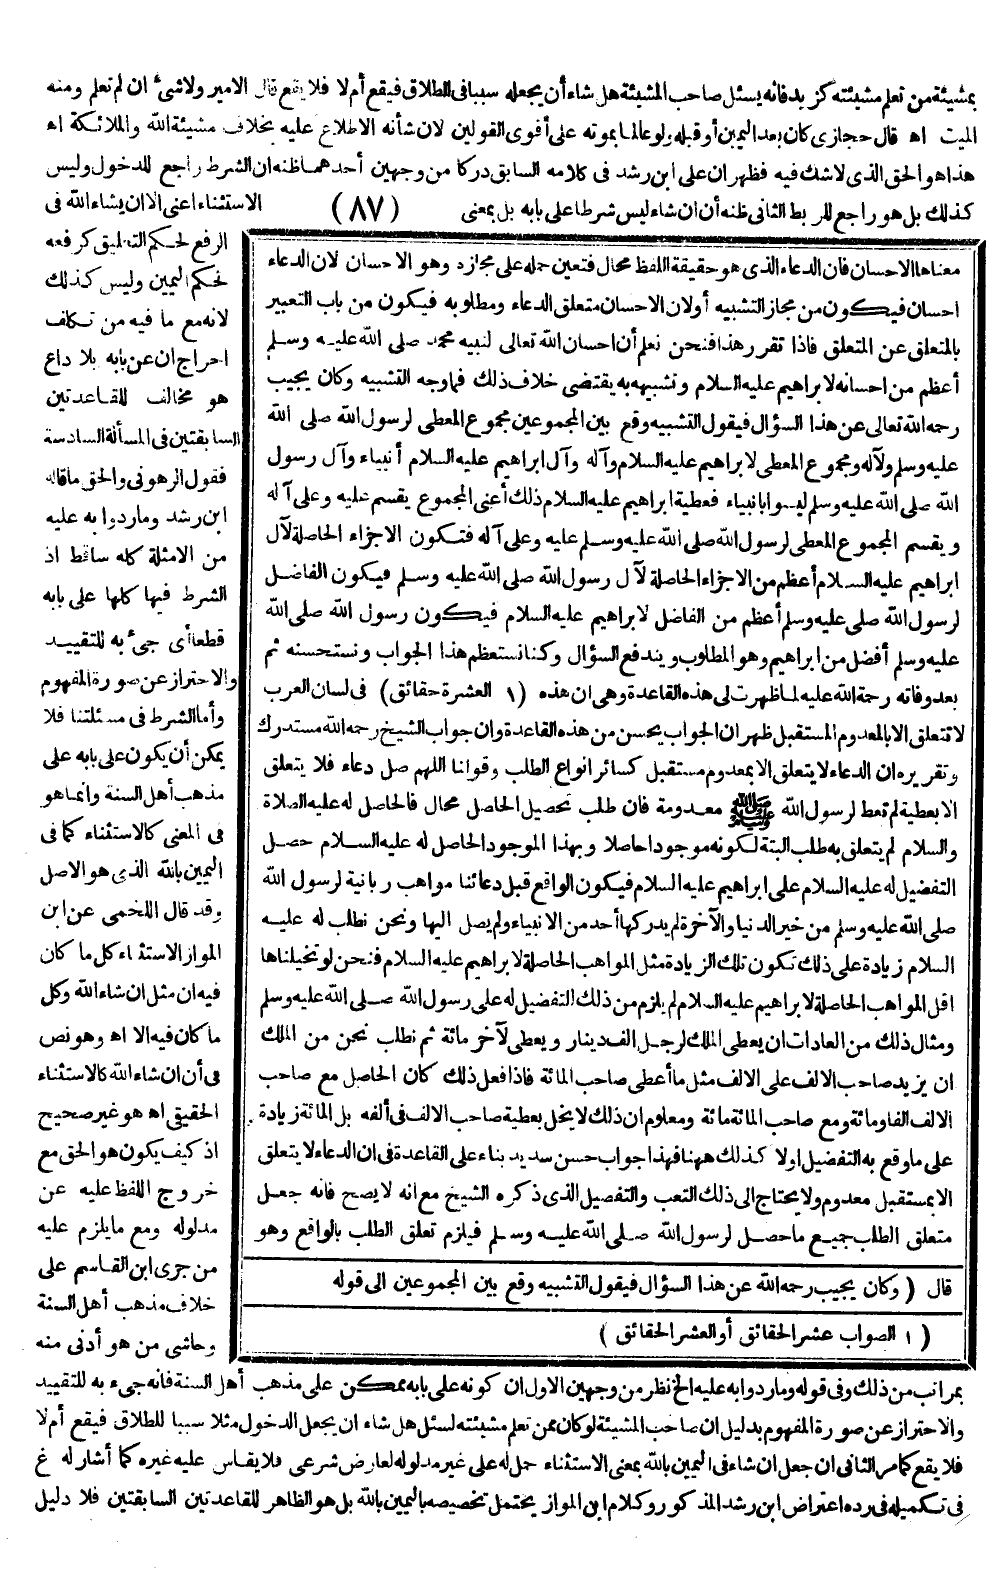 بمشيئة من تعلم مشيئته كزيد فانه يسئل صاحب المشيئة هل شاء أن يجعله سببا في الطلاق فيقع أم لا فلا يقع قال الامير ولا شيء ان لم تعلم ومنه
الميت اه قال حجازى كان بعد اليمين أو قبله ولو عالما بموته على أقوى القولين لان شأنه الاطلاع عليه بخلاف مشيئة الله والملائكة اه
هذا هو الحق الذى لا شك فيه فظهر ان على ابن رشد فى كلامه السابق دركا من وجهين أحدهما ظنه ان الشرط راجع للدخول وليس
كذلك بل هو راجع للربط الثانى ظنه أن ان شاء ليس شرطا على بابه بل بمعنى (٨٧) الاستثناء اعنى الا ان يشاء الله فى
الرفع لحكم التعليق كرفعه
لحكم اليمين وليس كذلك
لانه مع ما فيه من تكلف
احراج ان عن بابه بلا داع
هو مخالف للقاعدتين
السابقتين فى المسألة السادسة
فقول الرهونى والحق ما قاله
ابن رشد وما ردوا به عليه
من الامثلة كله ساقط اذ
الشرط فيها كلها على بابه
قطعا أى جيء به للتقييد
والاحتراز عن صورة المفهوم
وأما الشرط فى مسئلتنا فلا
يمكن أن يكون على بابه على
مذهب أهل السنة وانما هو
فى المعنى كالاستثناء كما فى
اليمين بالله الذى هو الاصل
وقد قال اللخمى عن ابن
المواز الاستثناء كل ما كان
فيه ان مثل ان شاء الله وكل
ما كان فيه الا اه وهو نص
فى أن ان شاء الله كالاستثناء
الحقيقى اه هو غير صحيح
اذ كيف يكون هو الحق مع
خروج اللفظ عليه عن
مدلوله ومع ما يلزم عليه
من جرى ابن القاسم على
خلاف مذهب أهل السنة
وحاشى من هو أدنى منه
معناها الاحسان فان الدعاء الذى هو حقيقة اللفظ محال فتعين حمله على مجازه وهو الاحسان لان الدعاء
احسان فيكون من مجاز التشبيه أو لان الاحسان متعلق الدعاء ومطلوبه فيكون من باب التعبير
بالمتعلق عن المتعلق فاذا تقرر هذا فنحن نعلم أن احسان الله تعالى لنبيه محمد صلى الله عليه وسلم
أعظم من احسانه لابراهيم عليه السلام وتشبيهه به يقتضى خلاف ذلك فما وجه التشبيه وكان يجيب
رحمه الله تعالى عن هذا السؤال فيقول التشبيه وقع بين المجموعين مجموع المعطى لرسول الله صلى الله
عليه وسلم ولآله ومجموع المعطى لابراهيم عليه السلام وآله وآل ابراهيم عليه السلام أنبياء وآل رسول
الله صلى الله عليه وسلم ليسوا بانبياء فعطية ابراهيم عليه السلام ذلك أعنى المجموع يقسم عليه وعلى آله
ويقسم المجموع المعطى لرسول الله صلى الله عليه وسلم عليه وعلى آله فتكون الاجزاء الحاصلة لآل
ابراهيم عليه السلام أعظم من الاجزاء الحاصلة لآل رسول الله صلى الله عليه وسلم فيكون الفاضل
لرسول الله صلى عليه وسلم أعظم من الفاضل لابراهيم عليه السلام فيكون رسول الله صلى الله
عليه وسلم أفضل من ابراهيم وهو المطلوب ويندفع السؤال وكنا نستعظم هذا الجواب ونستحسنه ثم
بعد وفاته رحمة الله عليه لما ظهرت لى هذه القاعدة وهى ان هذه (١ العشرة حقائق) فى لسان العرب
لا تتعلق الا بالمعدوم المستقبل ظهر ان الجواب يحسن من هذه القاعدة وان جواب الشيخ رحمه الله مستدرك
وتقريره ان الدعاء لا يتعلق الا بمعدوم مستقبل كسائر انواع الطلب وقولنا اللهم صل دعاء فلا يتعلق
الا بعطية لم تعط لرسول الله ﷺ معدومة فان طلب تحصيل الحاصل محال فالحاصل له عليه الصلاة
والسلام لم يتعلق به طلب البتة لكونه موجودا حاصلا وبهذا الموجود الحاصل له عليه السلام حصل
التفضيل له عليه السلام على ابراهيم عليه السلام فيكون الواقع قبل دعائنا مواهب ربانية لرسول الله
صلى الله عليه وسلم من خير الدنيا والآخرة لم يدركها أحد من الانبياء ولم يصل اليها ونحن نطلب له عليه
السلام زيادة على ذلك تكون تلك الزيادة مثل المواهب الحاصلة لابراهيم عليه السلام فنحن لو تخيلناها
اقل المواهب الحاصلة لابراهيم عليه السلام لم يلزم من ذلك التفضيل له على رسول الله صلى الله عليه وسلم
ومثال ذلك من العادات ان يعطى الملك لرجل الف دينار ويعطى لآخر مائة ثم نطلب نحن من الملك
ان يزيد صاحب الالف على الالف مثل ما أعطى صاحب المائة فاذا فعل ذلك كان الحاصل مع صاحب
الالف الفا ومائة ومع صاحب المائة مائة ومعلوم ان ذلك لا يخل بعطية صاحب الالف فى ألفه بل المائة زيادة
على ما وقع به التفضيل اولا كذلك ههنا فهذا جواب حسن سديد بناء على القاعدة فى ان الدعاء لا يتعلق
الا بمستقبل معدوم ولا يحتاج الى ذلك التعب والتفصيل الذى ذكره الشيخ مع انه لا يصح فانه جعل
متعلق الطلب جميع ما حصل لرسول الله صلى الله عليه وسلم فيلزم تعلق الطلب بالواقع وهو
قال (وكان يجيب رحمه الله عن هذا السؤال فيقول التشبيه وقع بين المجموعين الى قوله
(١ الصواب عشر الحقائق أو العشر الحقائق)
بمراتب من ذلك وفى قوله وما ردوا به عليه الخ نظر من وجهين الاول ان كونه على بابه ممكن على مذهب أهل السنة فانه جيء به للتقييد
والاحتراز عن صورة المفهوم بدليل ان صاحب المشيئة لو كان ممن تعلم مشيئته لسئل هل شاء ان يجعل الدخول مثلا سببا للطلاق فيقع أم لا
فلا يقع كما مر الثانى ان جعل ان شاء فى اليمين بالله بمعنى الاستثناء حمل له على غير مدلوله لعارض شرعى فلا يقاس عليه غيره كما أشار له غ
فى تكميله فى رده اعتراض ابن رشد المذكور وكلام ابن المواز يحتمل تخصيصه باليمين بالله بل هو الظاهر للقاعدتين السابقتين فلا دليل